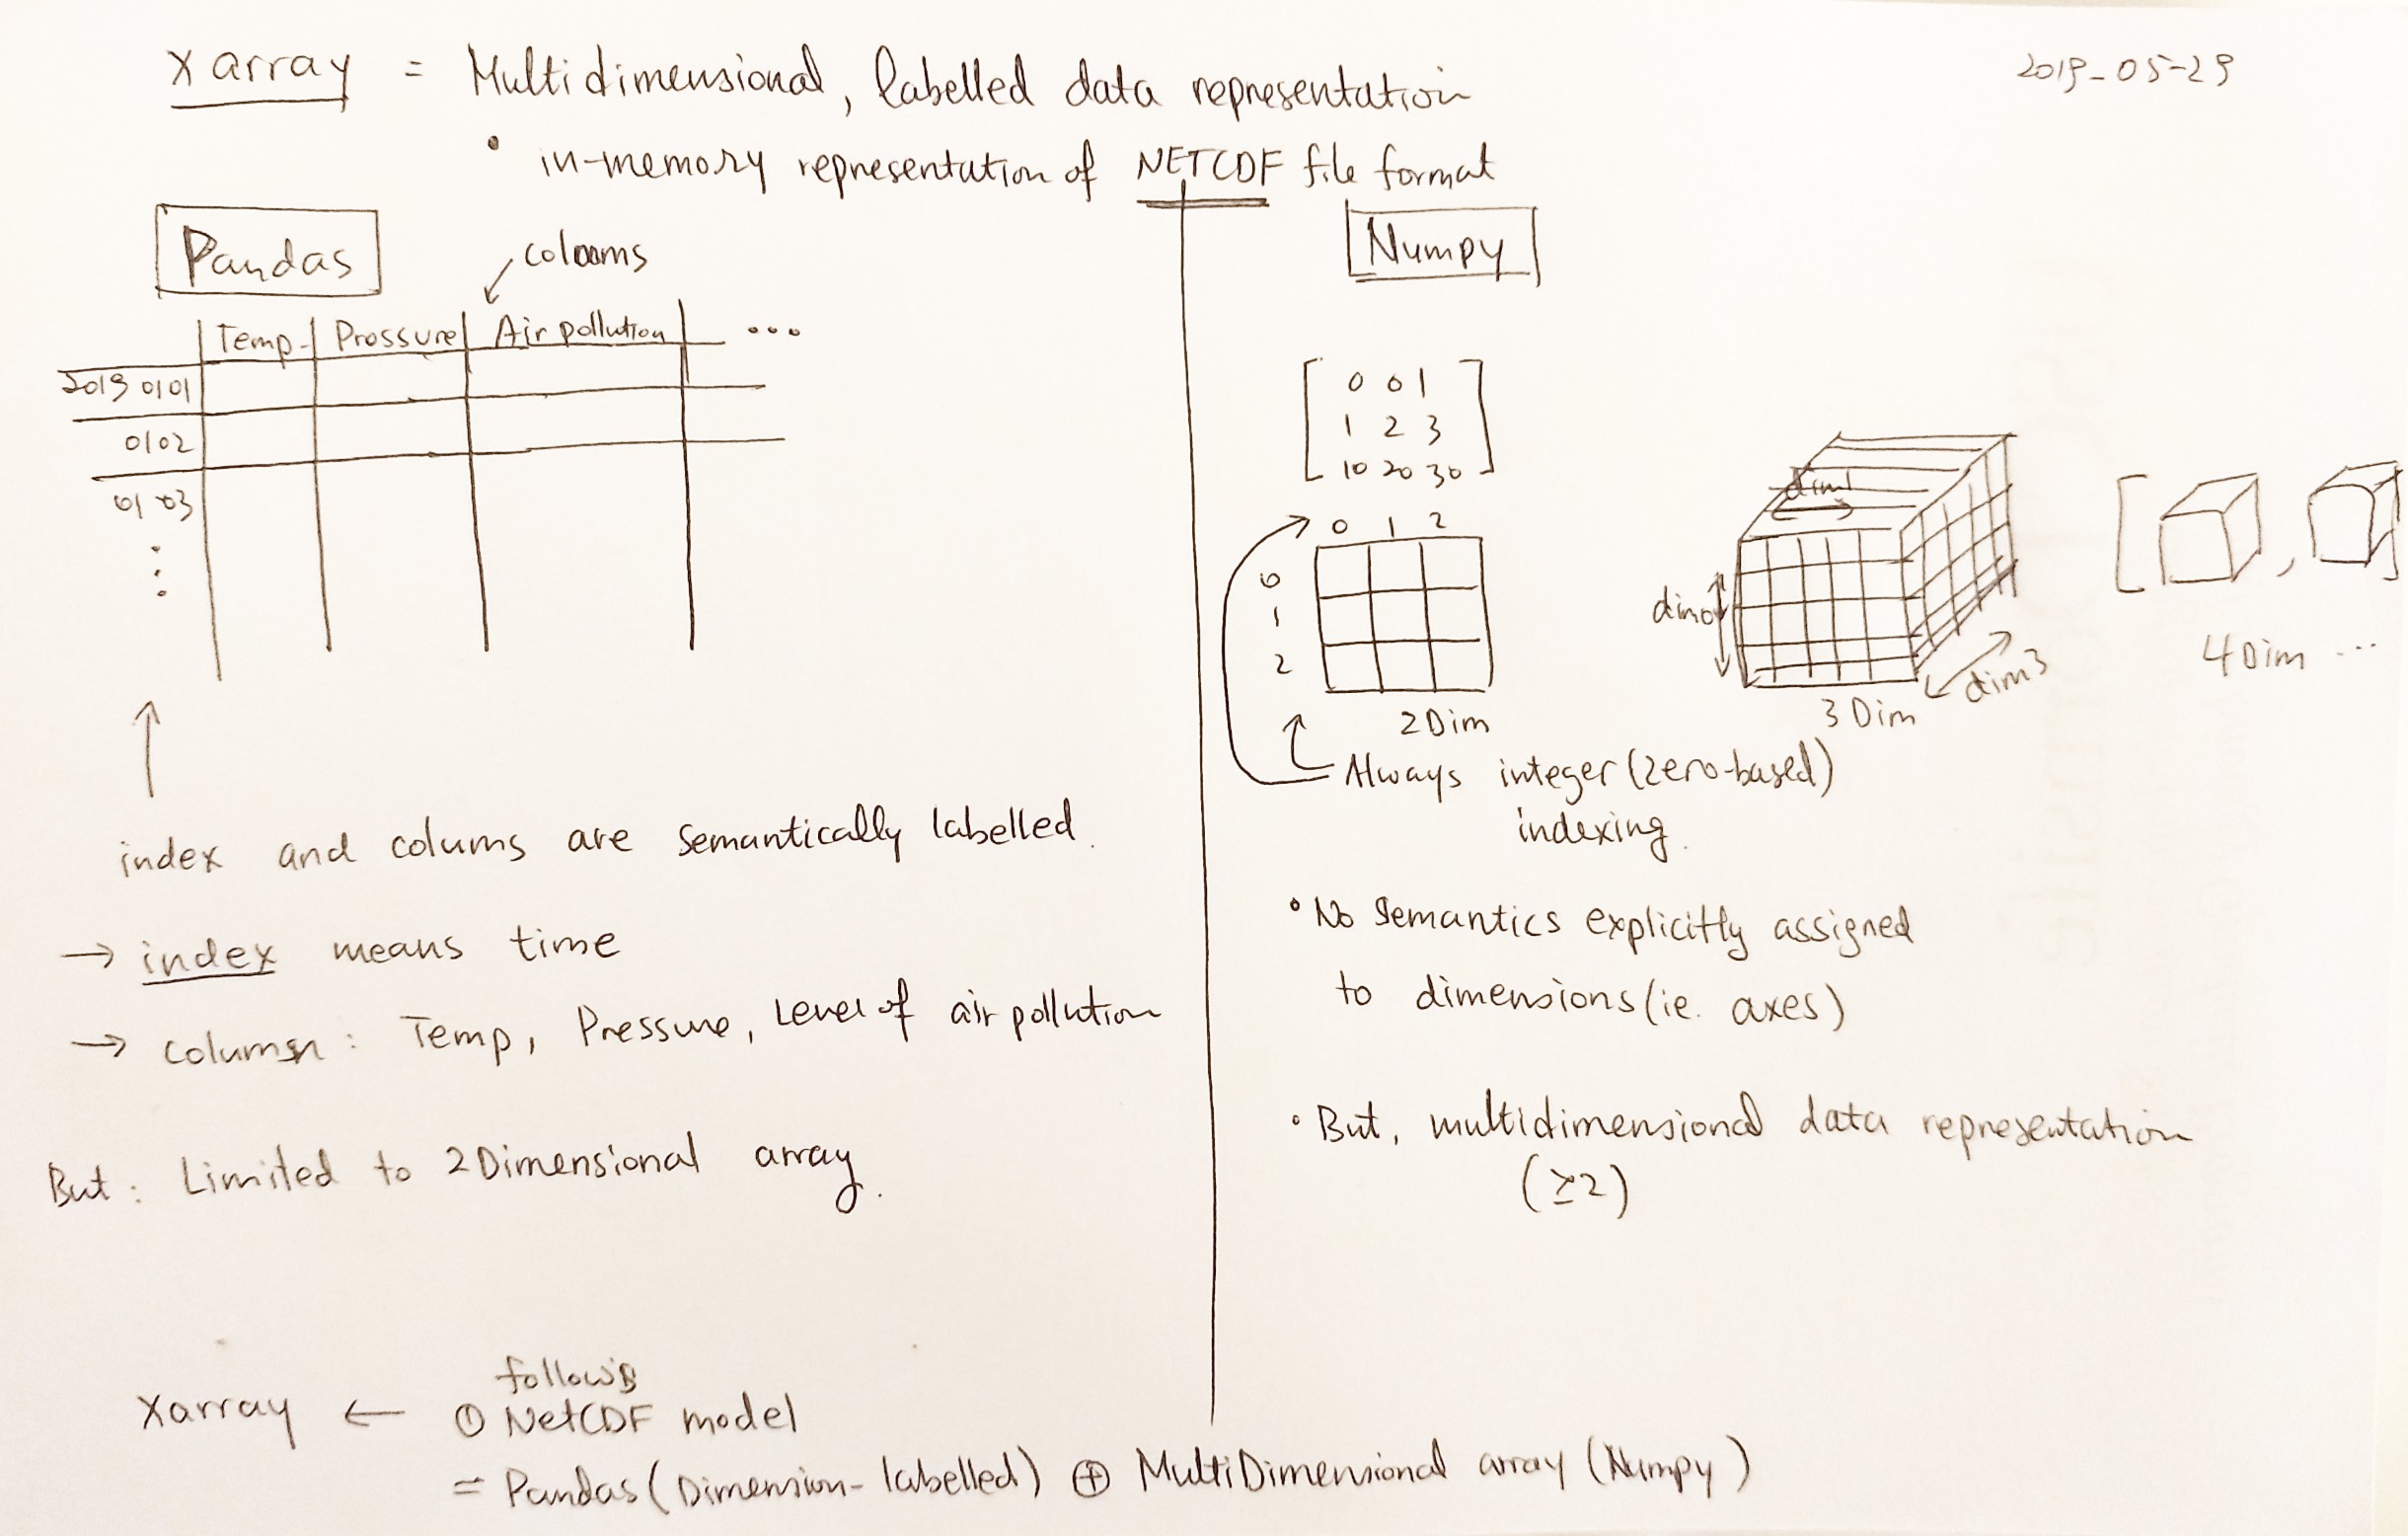 xarray = Multidimensional, labelled data representation
2019-05-29
• in-memory representation of NETCDF file format
Pandas
colooms
Temp. Prossure Air pollution ...
2019 0101
0102
01 03
index and colums are semantically labelled.
→ index means time
→ column : Temp, Pressure, Level of air pollution
But : Limited to 2Dimensional array.
Numpy
0 0 1
1 2 3
10 20 30
0 1 2
0
1
2
2Dim
dim1
dim0
dim3
3 Dim
[ , ]
4Dim ...
Always integer (zero-based)
indexing.
• No semantics explicitly assigned
to dimensions (ie. axes)
• But, multidimensional data representation
(≥2)
follows
Xarray ← ① NetCDF model
= Pandas (Dimension-labelled) ⊕ MultiDimensional array (Numpy)